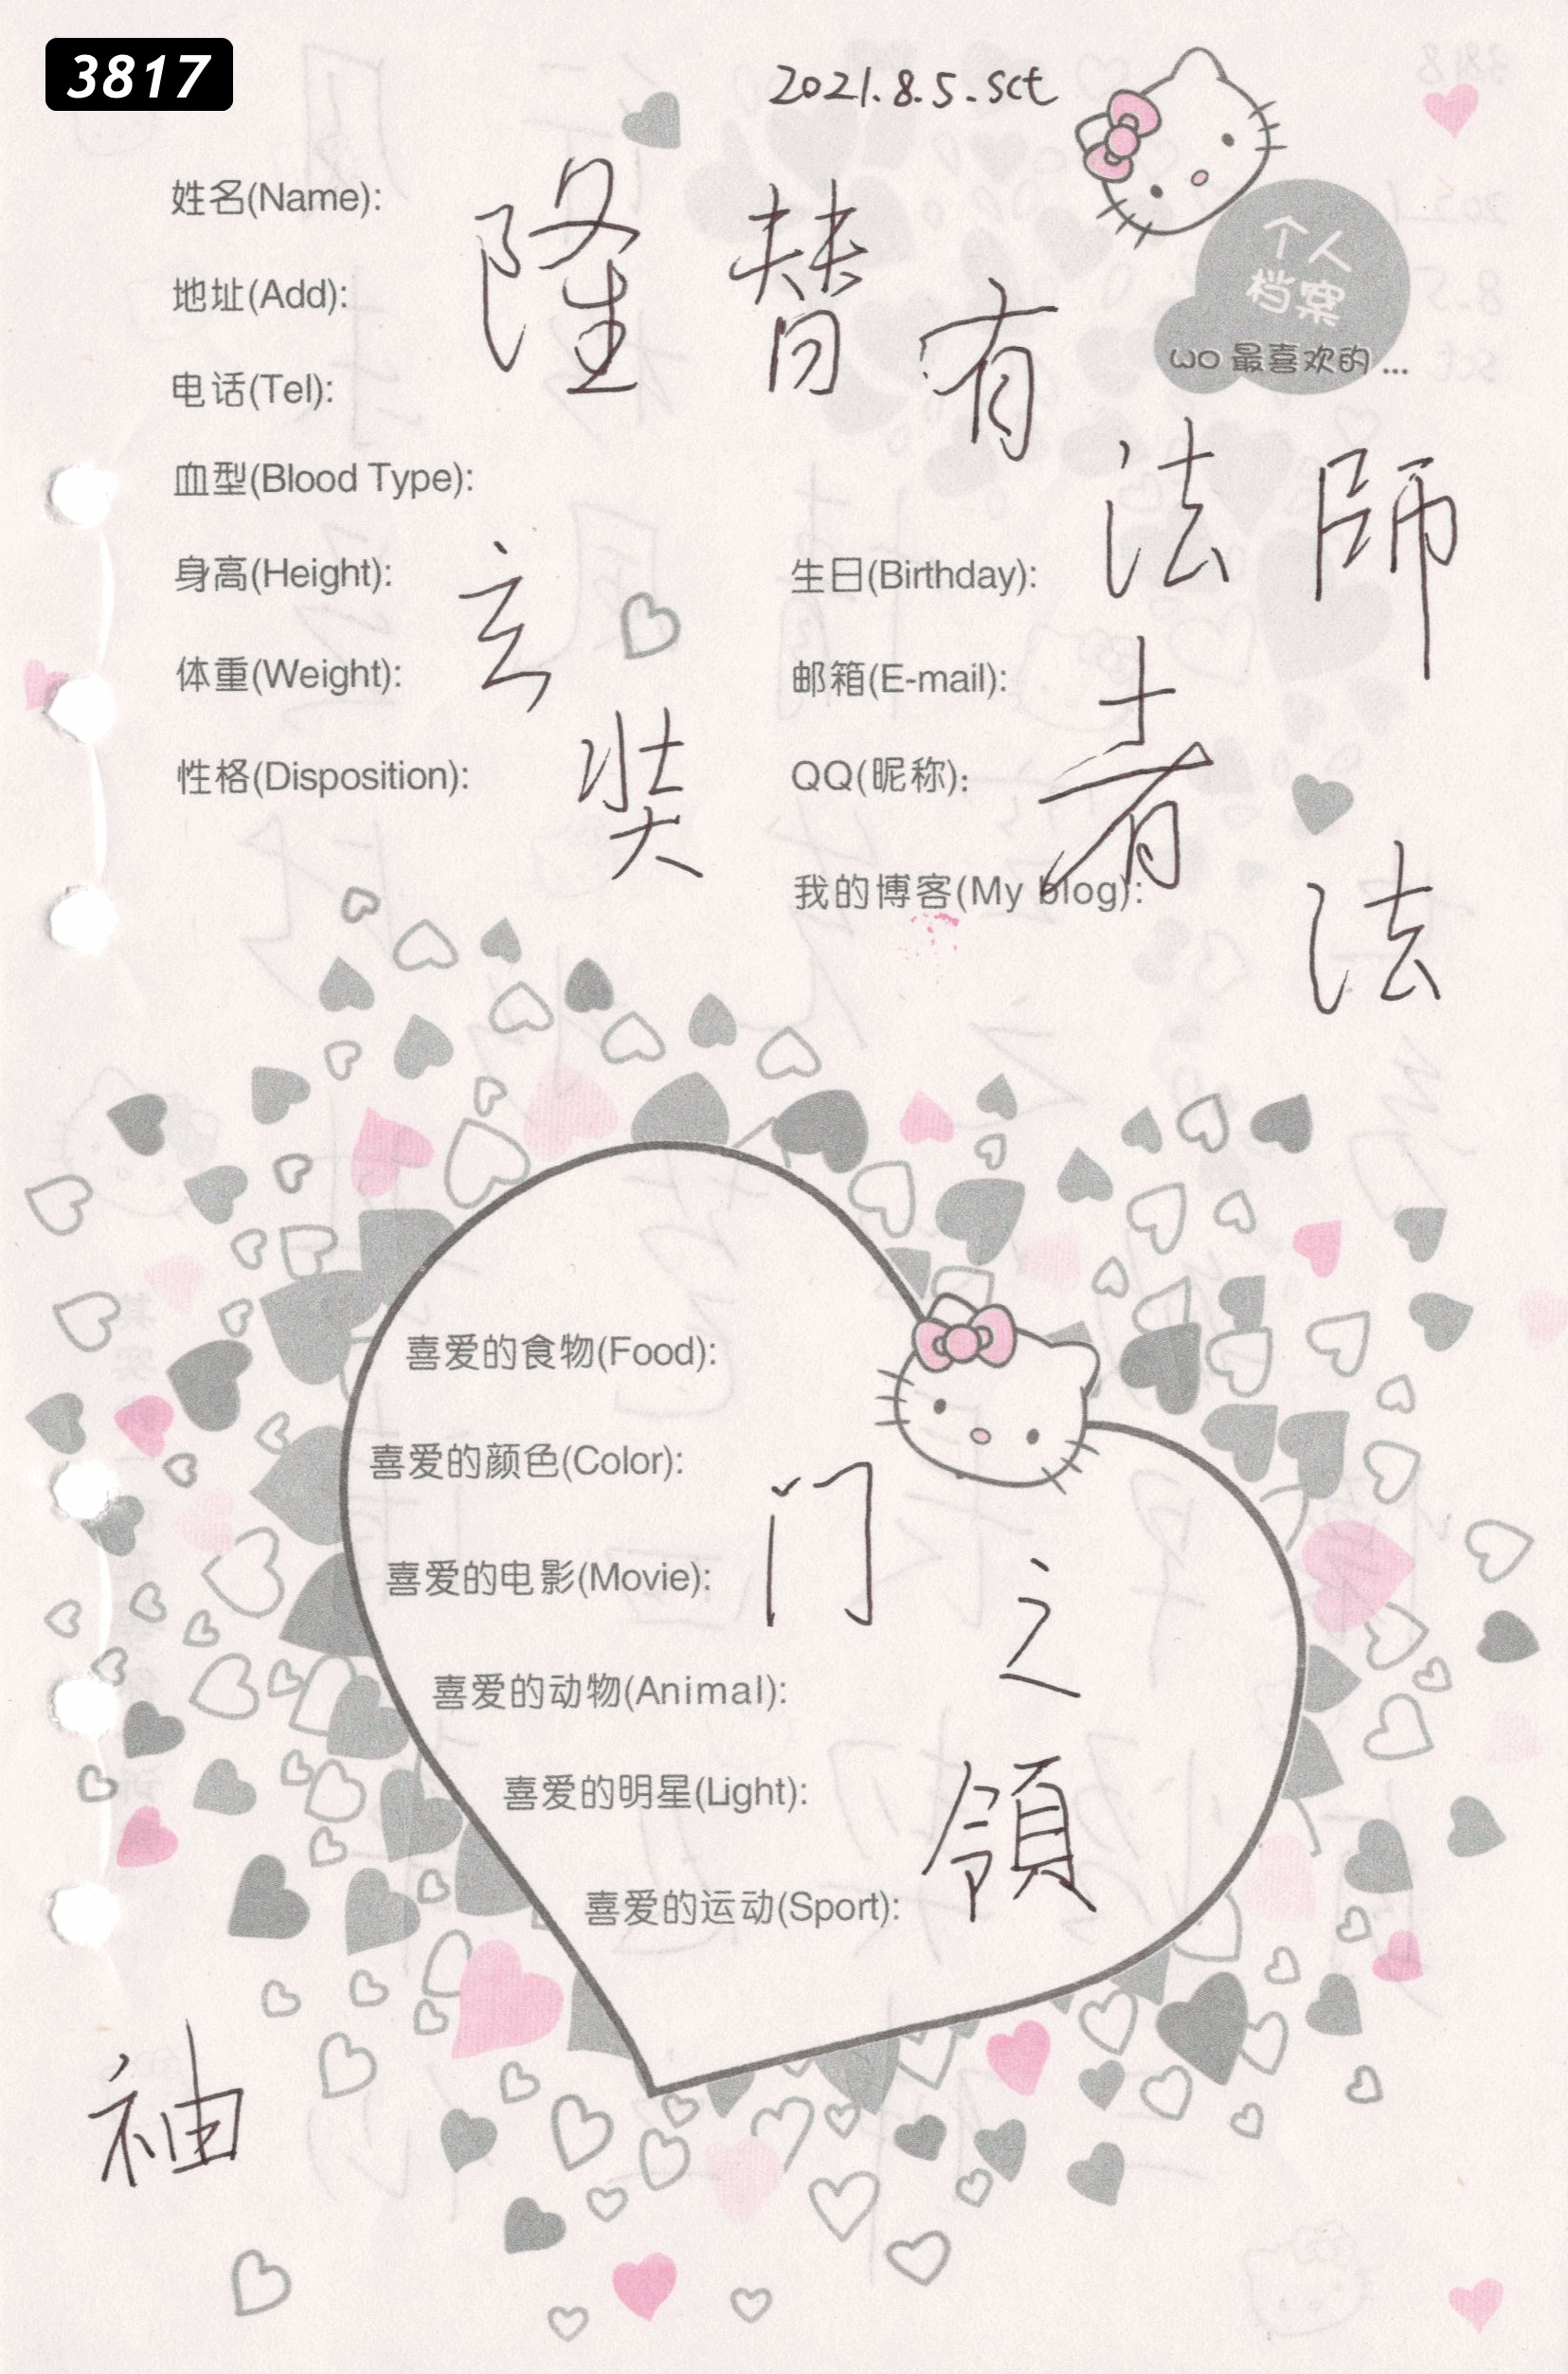 3817
2021.8.5.sct
姓名(Name):
地址(Add):
电话(Tel):
血型(Blood Type):
身高(Height):
体重(Weight):
性格(Disposition):
个人
档案
wo 最喜欢的...
生日(Birthday):
邮箱(E-mail):
QQ(昵称):
我的博客(My blog):
隆替有
玄奘
法師
者法
喜爱的食物(Food):
喜爱的颜色(Color):
喜爱的电影(Movie):
喜爱的动物(Animal):
喜爱的明星(Light):
喜爱的运动(Sport):
门之領
袖